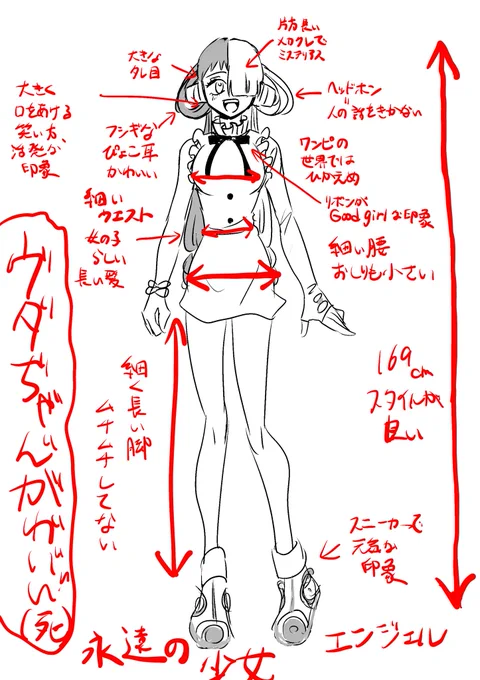 片方長い
メカクレで
ミステリアス
大きな
タレ目
大きく
口をあける
笑い方、
活発な
印象
ヘッドホン
=
人の話をきかない
フシギな
ぴょこ耳
かわいい
ワンピの
世界では
ひかえめ
リボンが
Good girlな印象
細い
ウエスト
女の子
らしい
長い髪
細い腰
おしりも小さい
169cm
スタイルが
良い
細く長い脚
ムチムチしてない
ウダぢゃんがわ゛い゛い゛
(死)
スニーカーで
元気な
印象
永遠の
少女
エンジェル